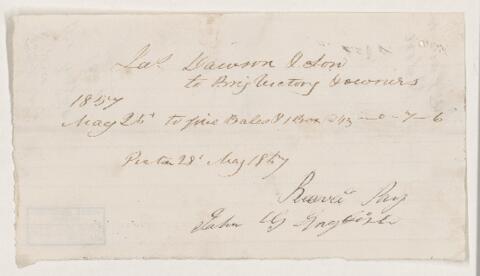 Jas Dawson & Son
to Brig Victory & owners
1857
May 26 to five Bales & 1 Box 0-7-6
Pictou 28 May 1857
Received Pay
John